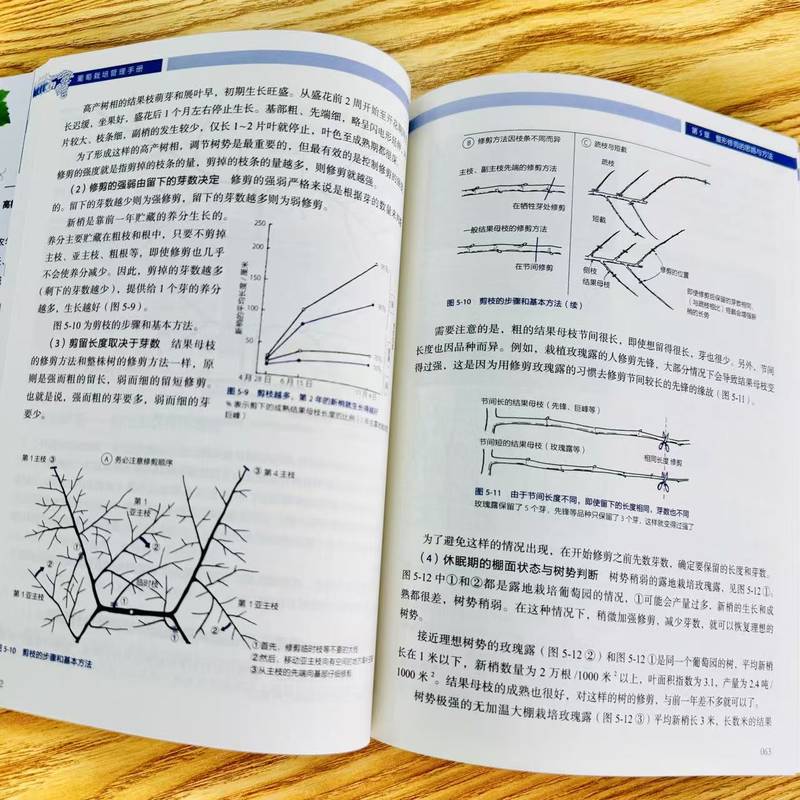 葡萄栽培管理手册
高产树相的结果枝萌芽和展叶早，初期生长旺盛。从盛花前2周开始至开花期
长迟缓，坐果好，盛花后1个月左右停止生长。基部粗、先端细，略呈闪电形
片较大、枝条细，副梢的发生较少，仅长1~2片叶就停止，叶色至成熟期都很
为了形成这样的高产树相，调节树势是最重要的，但最有效的是控制修剪的
修剪的强度就是指剪掉的枝条的量，剪掉的枝条的量越多，则修剪就越强。
（2）修剪的强弱由留下的芽数决定 修剪的强弱严格来说是根据芽的数量来
的。留下的芽数越少则为强修剪，留下的芽数越多则为弱修剪。
新梢是靠前一年贮藏的养分生长的。
养分主要贮藏在粗枝和根中，只要不剪掉
主枝、亚主枝、粗根等，即使修剪也几乎
不会使养分减少。因此，剪掉的芽数越多
（剩下的芽数越少），提供给1个芽的养分
越多，生长越好（图5-9）。
图5-10为剪枝的步骤和基本方法。
（3）剪留长度取决于芽数 结果母枝
的修剪方法和整株树的修剪方法一样，原
则是强而粗的留长，弱而细的留短修剪。
也就是说，强而粗的芽要多，弱而细的芽
要少。
250
200
150
50
新梢的平均长度/厘米
4月28日 6月15日 11月4日
图5-9 剪枝越多，第2年的新梢就生长得越好
%表示剪下的成熟结果母枝长度的比例
巨峰）
Ⓐ 务必注意修剪顺序
第1主枝 ③
③ 第4主枝
第1
亚主枝
②
②
①
临时枝
①
第1亚主枝
第1亚主枝
②
①首先，修剪临时枝等不要的大枝
②然后，移动亚主枝向有空间的地方
③从主枝的先端向基部仔细修剪
5-10 剪枝的步骤和基本方法
第5章 整形修剪的思路与方法
Ⓑ 修剪方法因枝条不同而异
主枝、副主枝先端的修剪方法
在牺牲芽处修剪
一般结果母枝的修剪方法
在节间修剪
Ⓒ 疏枝与短截
疏枝
短截
侧枝
结果母枝
修剪的位置
即使修剪后保留的芽数相同，
（与疏枝相比）短截会增强新
梢的长势
图5-10 剪枝的步骤和基本方法（续）
需要注意的是，粗的结果母枝节间很长，即使想留得很长，芽也很少。另外，节间
长度也因品种而异。例如，栽植玫瑰露的人修剪先锋，大部分情况下会导致结果母枝变
得过强，这是因为用修剪玫瑰露的习惯去修剪节间较长的先锋的缘故（图5-11）。
节间长的结果母枝（先锋、巨峰等）
节间短的结果母枝（玫瑰露等）
相同长度修剪
图5-11 由于节间长度不同，即使留下的长度相同，芽数也不同
玫瑰露保留了5个芽，先锋等品种只保留了3个芽，这样就变得过强了
为了避免这样的情况出现，在开始修剪之前先数芽数，确定要保留的长度和芽数。
（4）休眠期的棚面状态与树势判断 树势稍弱的露地栽培玫瑰露，见图5-12①。
图5-12中①和②都是露地栽培葡萄园的情况，①可能会产量过多，新梢的生长和成
熟都很差，树势稍弱。在这种情况下，稍微加强修剪、减少芽数，就可以恢复理想的
树势。
接近理想树势的玫瑰露（图5-12②）和图5-12①是同一个葡萄园的树，平均新梢
长在1米以下，新梢数量为2万根/1000米²以上，叶面积指数为3.1，产量为2.4吨/
1000米²。结果母枝的成熟也很好，对这样的树的修剪，与前一年差不多就可以了。
树势极强的无加温大棚栽培玫瑰露（图5-12③）平均新梢长3米，长数米的结果
063